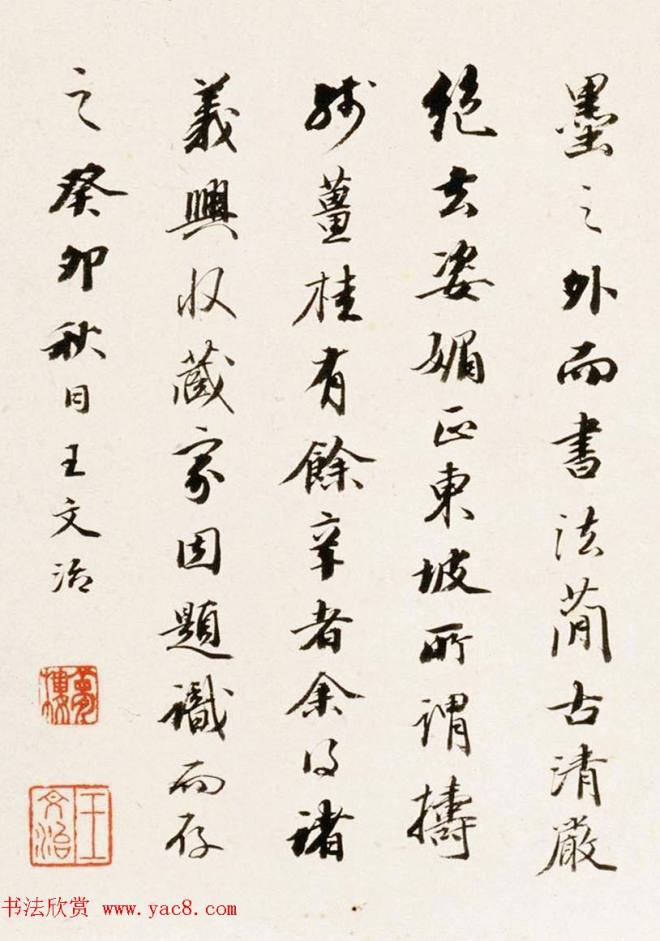 墨之外而書法蕑古清嚴
絶去姿媚正東坡所謂擣
殘薑桂有餘辛者余得諸
義興收藏家因題識而存
之癸卯秋日王文治
夢樓
王文治
书法欣赏 www.yac8.com